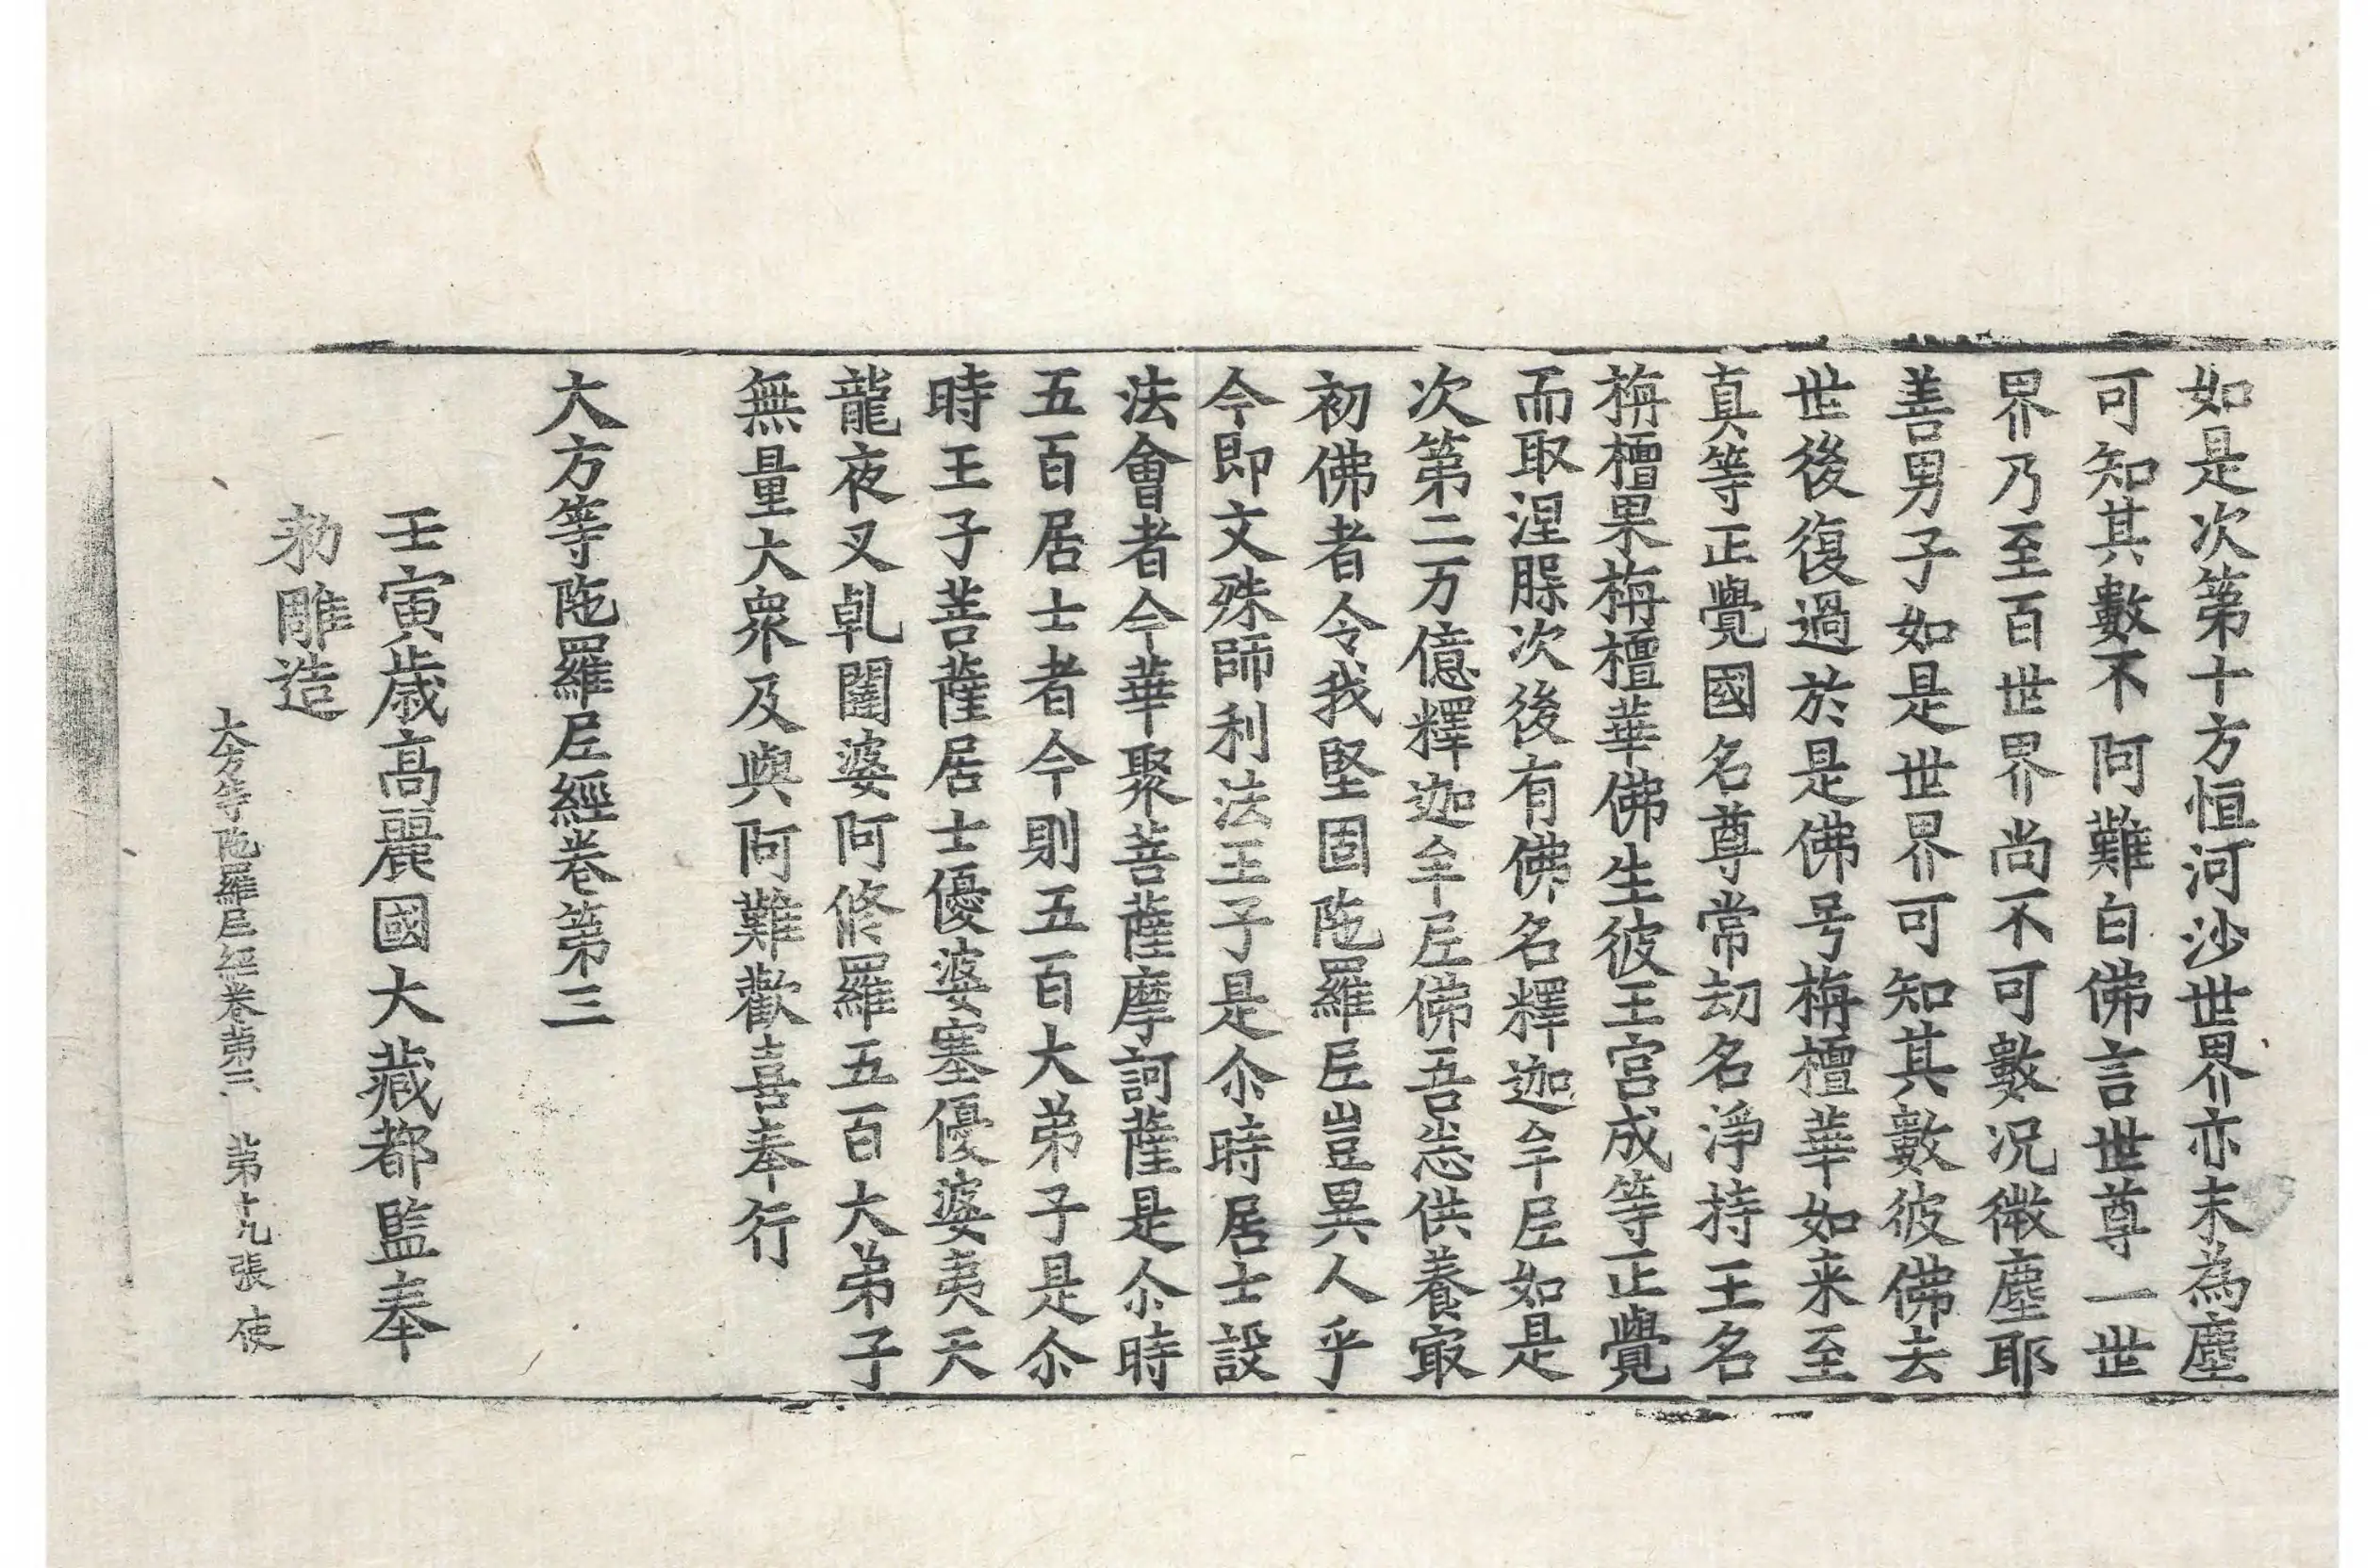 如是次第十方恒河沙世界亦末為塵
可知其數不阿難白佛言世尊一世
界乃至百世界尚不可數况微塵耶
善男子如是世界可知其數彼佛去
世後復過於是佛号栴檀華如来至
真等正覺國名尊常劫名淨持王名
栴檀果栴檀華佛生彼王宮成等正覺
而取涅槃次後有佛名釋迦牟尼如是
次第二万億釋迦牟尼佛吾悉供養㝡
初佛者令我堅固陁羅尼豈異人乎
今即文殊師利法王子是尒時居士設
法會者今華聚菩薩摩訶薩是尒時
五百居士者今則五百大弟子是尒
時王子菩薩居士優婆塞優婆夷天
龍夜叉乹闥婆阿修羅五百大弟子
無量大衆及與阿難歡喜奉行
大方等陁羅尼經卷第三
壬寅歳高麗國大藏都監奉
勑雕造
大方等陁羅尼經卷第三 第十九張 使